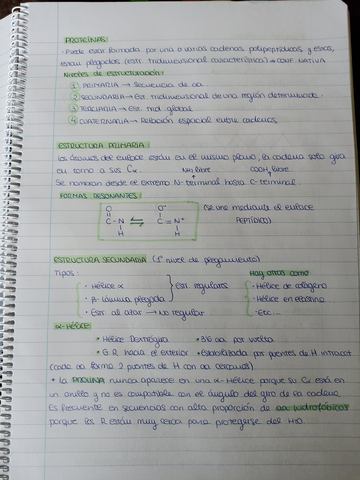 PROTEÍNAS:
· Puede estar formada por una o varias cadenas polipeptídicas, y estas,
están plegadas (estr. tridimensional característica) → CONF. NATIVA
Niveles de estructuración:
1 PRIMARIA → Secuencia de aa.
2 SECUNDARIA → Est. tridimensional de una región determinada.
3 TERCIARIA → Est. trid. global.
4 CUATERNARIA → Relación espacial entre cadenas.
ESTRUCTURA PRIMARIA:
Los átomos del enlace están en el mismo plano, la cadena solo gira
en torno a sus Cα. NH2 libre COOH libre
Se nombran desde el extremo N-terminal hasta C-terminal.
FORMAS RESONANTES:
O O⁻
C-N ⇌ C=N⁺
H H
(se une mediante el enlace
PEPTÍDICO)
ESTRUCTURA SECUNDARIA (1er nivel de plegamiento)
Tipos: Hay otros como
· Hélice α · Hélice de colágeno
· β-lámina plegada Est. regulares · Hélice en elastina
· Estr. al azar → No regular · Etc...
α-HÉLICE:
· Hélice Dextrógira · 3'6 aa por vuelta
· G.R. hacia el exterior · Estabilizada por puentes de H intracat
(cada aa forma 2 puentes de H con aa cercanos)
· La PROLINA nunca aparece en una α-Hélice porque su Cα está en
un anillo y no es compatible con el ángulo del giro de la cadena.
Es frecuente en secuencias con alta proporción de aa hidrofóbicos
porque los R están muy cerca para protegerse del H2O